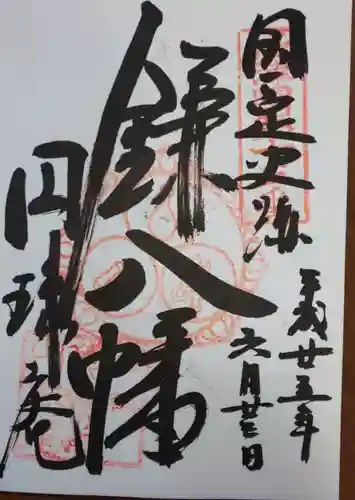 国定史跡
鎌八幡
円珠庵
平成廿五年
六月廿三日